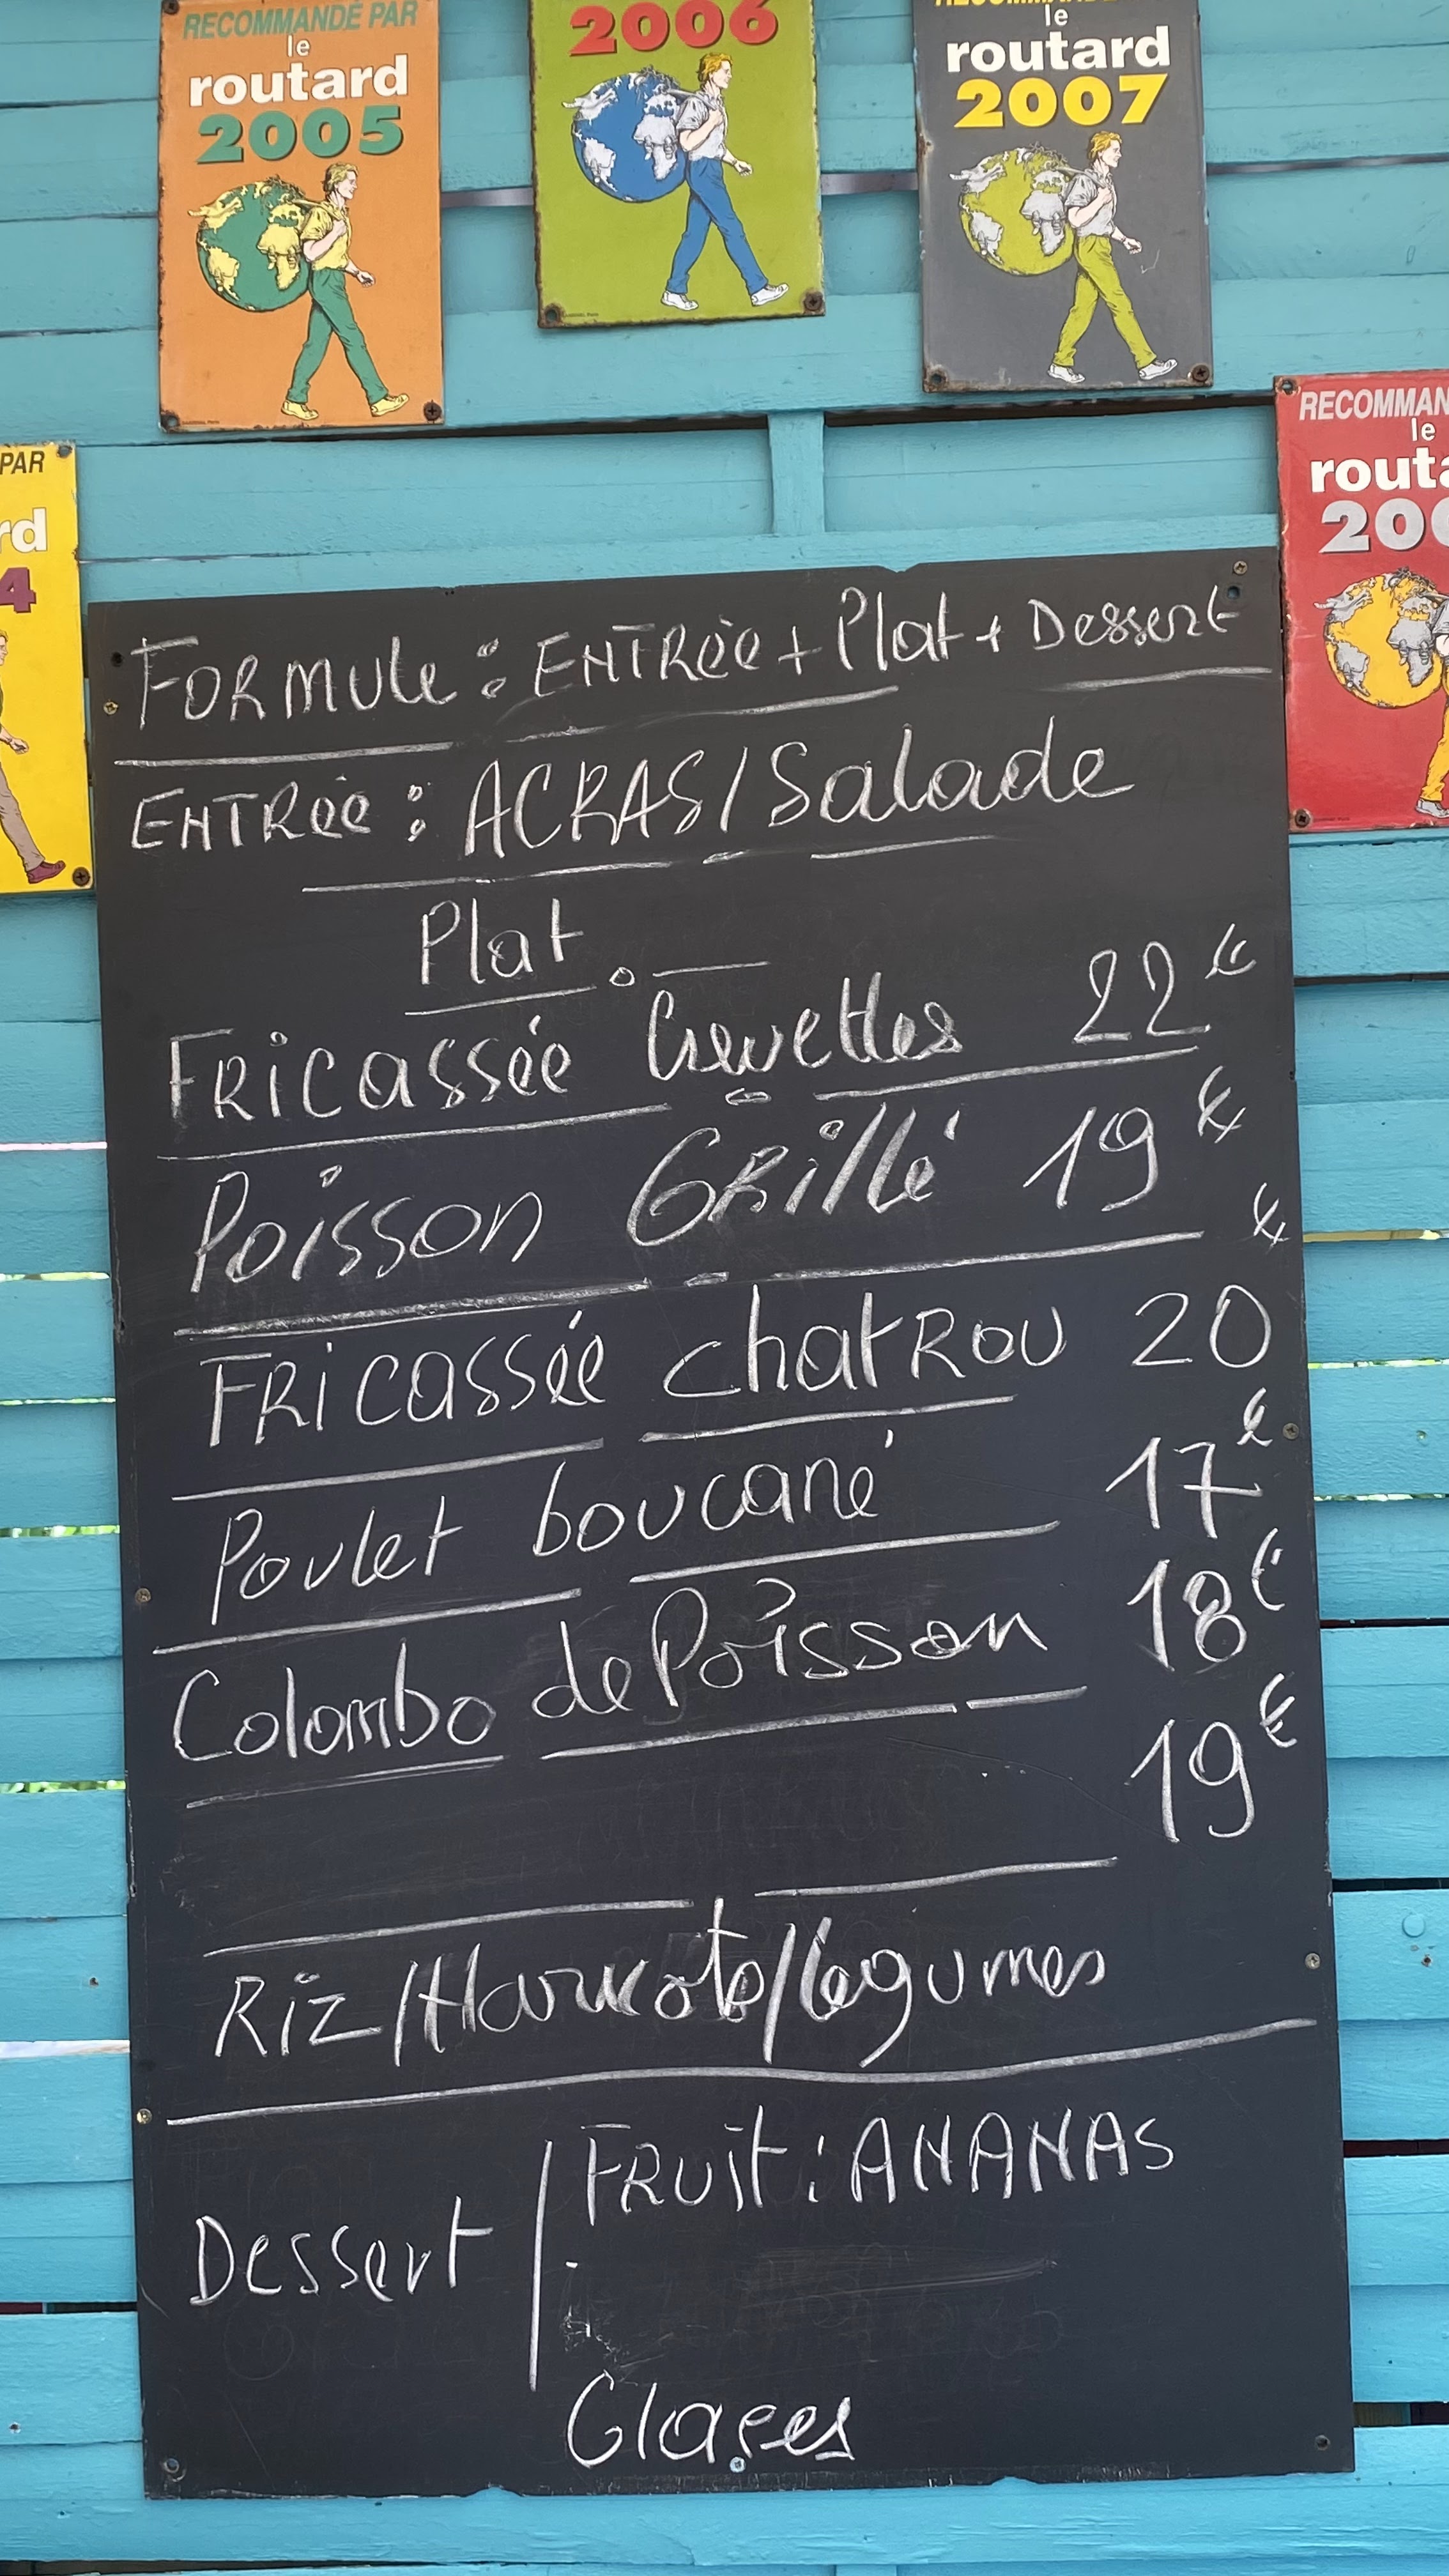 RECOMMANDÉ PAR
le
routard
2005
2006
le
routard
2007
PAR
rd
4
RECOMMAN
le
routa
200
Formule : Entrée + Plat + Dessert
Entrée : ACRAS / Salade
Plat :
Fricassée Crevettes 22€
Poisson Grillé 19€
Fricassée chatrou 20€
Poulet boucané 17€
Colombo de Poisson 18€
19€
Riz / Haricots / légumes
Dessert / Fruit : ANANAS
Glaçes